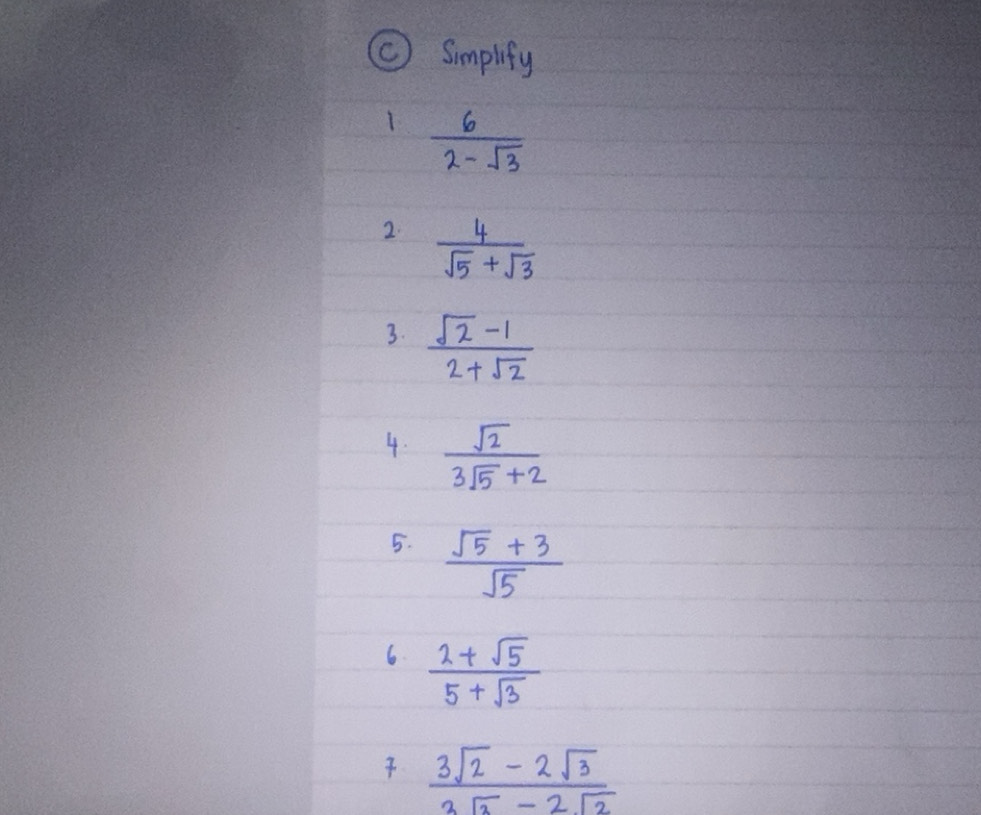 Ⓒ Simplify
1 6
2 - √3
2. 4
√5 + √3
3. √2 - 1
2 + √2
4. √2
3√5 + 2
5. √5 + 3
√5
6. 2 + √5
5 + √3
7 3√2 - 2√3
- 2√2